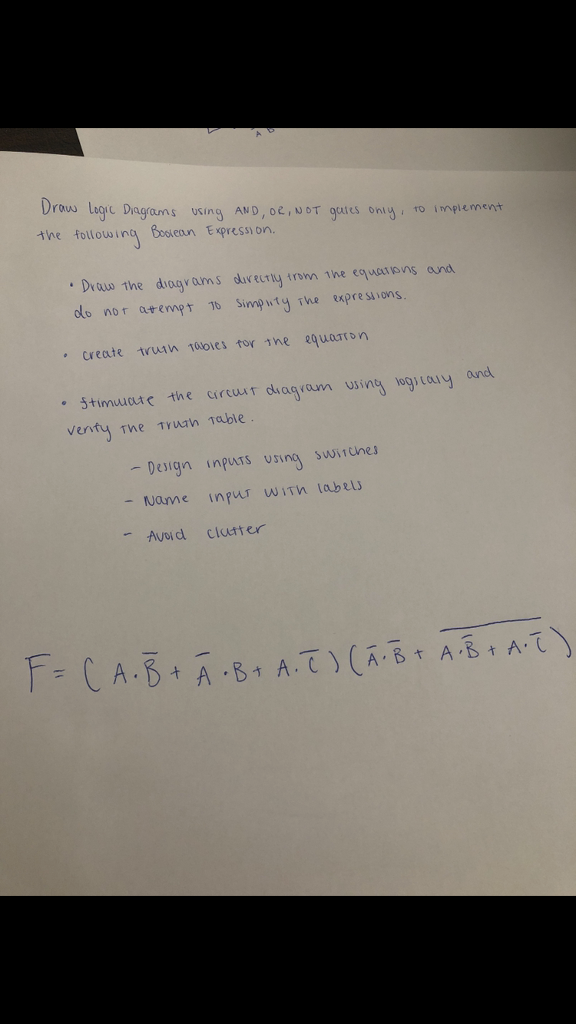 A B
Draw Logic Diagrams using AND, OR, NOT gates only, to implement
the following Boolean Expression.
• Draw the diagrams directly from the equations and
do not attempt to simplify the expressions.
• create truth tables for the equation
• Stimulate the circuit diagram using logicaly and
verify the truth table.
- Design inputs using switches
- Name input with labels
- Avoid clutter
F = ( A·B̅ + A̅·B + A·C̅ ) ( A̅·B̅ + \overline{A·B̅ + A·C̅} )